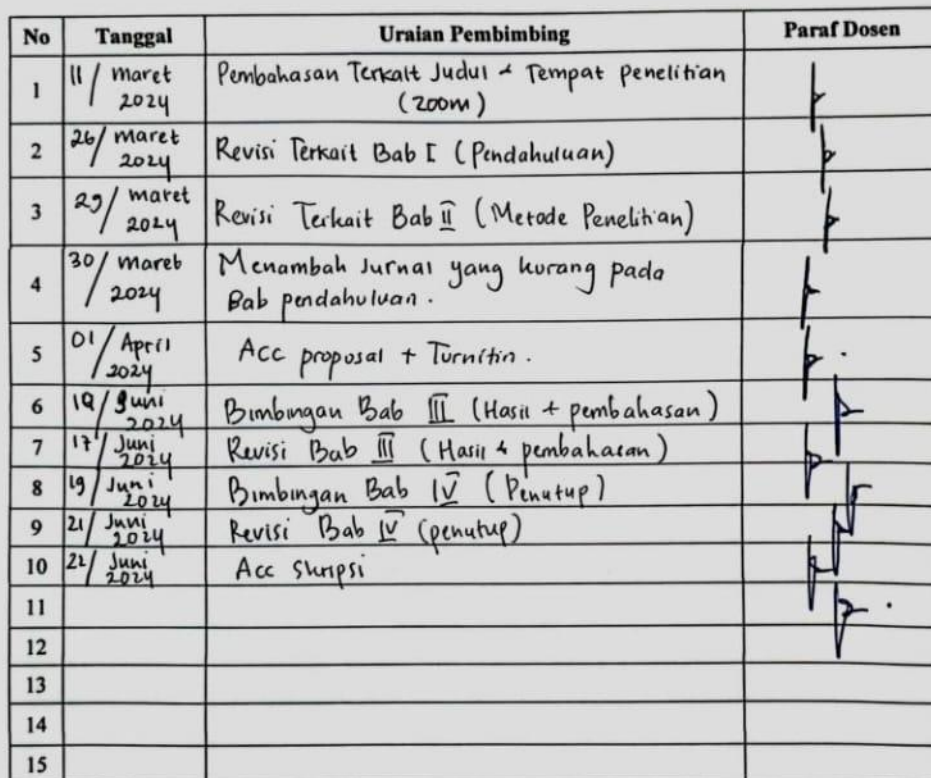 No Tanggal Uraian Pembimbing Paraf Dosen
1 11/ maret 2024 Pembahasan Terkait Judul & Tempat penelitian
(zoom)
2 26/ maret 2024 Revisi Terkait Bab I (Pendahuluan)
3 29/ maret 2024 Revisi Terkait Bab II (Metode Penelitian)
4 30/ maret 2024 Menambah Jurnal yang kurang pada
Bab pendahuluan.
5 01/ April 2024 Acc proposal + Turnitin.
6 Juni 2024 Bimbingan Bab III (Hasil + pembahasan)
7 17/ Juni 2024 Revisi Bab III (Hasil & pembahasan)
8 19/ Juni 2024 Bimbingan Bab IV (Penutup)
9 21/ Juni 2024 Revisi Bab IV (penutup)
10 22/ Juni 2024 Acc Skripsi
11
12
13
14
15